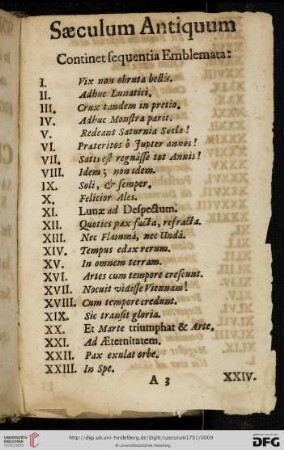 Sæculum Antiquum
Continet sequentia Emblemata:
I. Vix non obruta bellis.
II. Adhuc Lunatici.
III. Crux tandem in pretio.
IV. Adhuc Monstra parit.
V. Redeant Saturnia Sæcla!
VI. Præteritos ô Jupter annos!
VII. Satis est regnásse tot Annis!
VIII. Idem; non idem.
IX. Soli, & semper.
X. Felicior Ales.
XI. Lunæ ad Despectum.
XII. Quoties pax facta, refracta.
XIII. Nec Flammâ, nec Undâ.
XIV. Tempus edax rerum.
XV. In omnem terram.
XVI. Artes cum tempore crescunt.
XVII. Nocuit vidisse Viennam!
XVIII. Cum tempore credunt.
XIX. Sic transit gloria.
XX. Et Marte triumphat & Arte.
XXI. Ad Æternitatem.
XXII. Pax exulat orbe.
XXIII. In Spe.
A 3 XXIV.
UNIVERSITÄTS-
BIBLIOTHEK
HEIDELBERG
http://digi.ub.uni-heidelberg.de/diglit/saeculum1701/0009
© Universitätsbibliothek Heidelberg
gefördert durch die
DFG